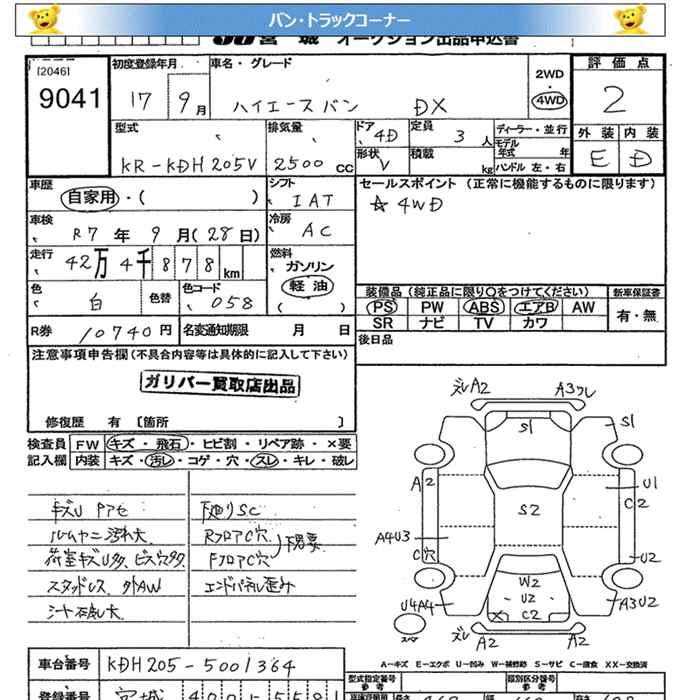 バン・トラックコーナー
JU 宮城 オークション出品申込書
[2046]
9041
初度登録年月 車名・グレード 2WD ・ 4WD 評価点
17 9月 ハイエースバン DX 2
型式 排気量 ドア 4D 定員 3 人 ディーラー・並行 外装 内装
KR-KDH205V 2500 CC 形状 V 積載 kg モデル年式 年 ハンドル 左・右 E D
車歴 シフト セールスポイント (正常に機能するものに限ります)
自家用・( ) IAT ☆ 4WD
車検 冷房
R7 年 9 月 (28 日) AC
走行 燃料
42万 4千 878 km ガソリン 軽油 ( )
色 色替 色コード 装備品 (純正品に限り○をつけてください) 新車保証書
白 058 PS PW ABS エアB AW 有・無
SR ナビ TV カワ
R券 10740 円 名変通知期限 月 日 後日品
注意事項申告欄(不具合内容等は具体的に記入して下さい)
ガリバー買取店出品
修復歴 有 [箇所 ]
検査員 FW キズ・飛石・ヒビ割・リペア跡・×要
記入欄 内装 キズ・汚レ・コゲ・穴・スレ・キレ・破レ
キズU Pアセ 下廻りSC
ルームヤニ汚れ大 RフロアC穴
荷室キズU多、ビス穴多 FフロアC穴 下見要
スタッドレス 外AW エンドパネル歪み
シート破レ大
ズレ A2 A3ワレ
S1 S1
A2 U1
C2
S2
A4U3
C穴 U2
W2
U2
U4A4 C2 A3U2
スペア ズレ A2 A2
A-キズ E-エクボ U-凹み W-補修跡 S-サビ C-腐食 XX-交換済
車台番号 KDH205-5001364
型式指定番号 参考 類別区分番号 参考
登録番号 宮城 400 5581